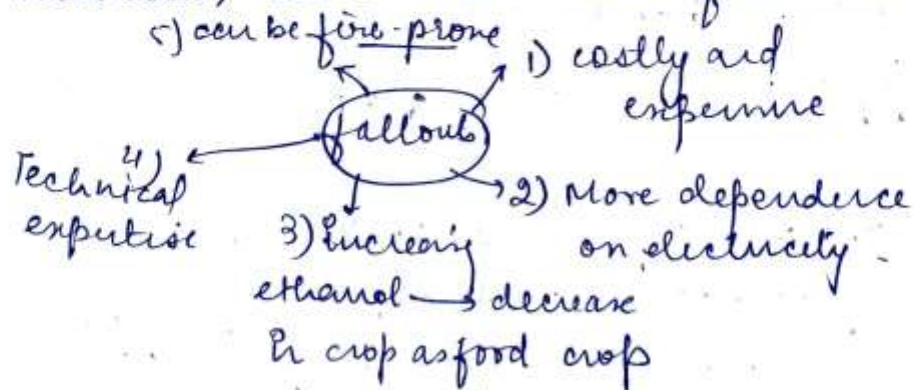 5) can be fire-prone
1) costly and
expensive
fallouts
4)
Technical
expertise
2) More dependence
on electricity.
3) Increasing
ethanol → decrease
in crop as food crop